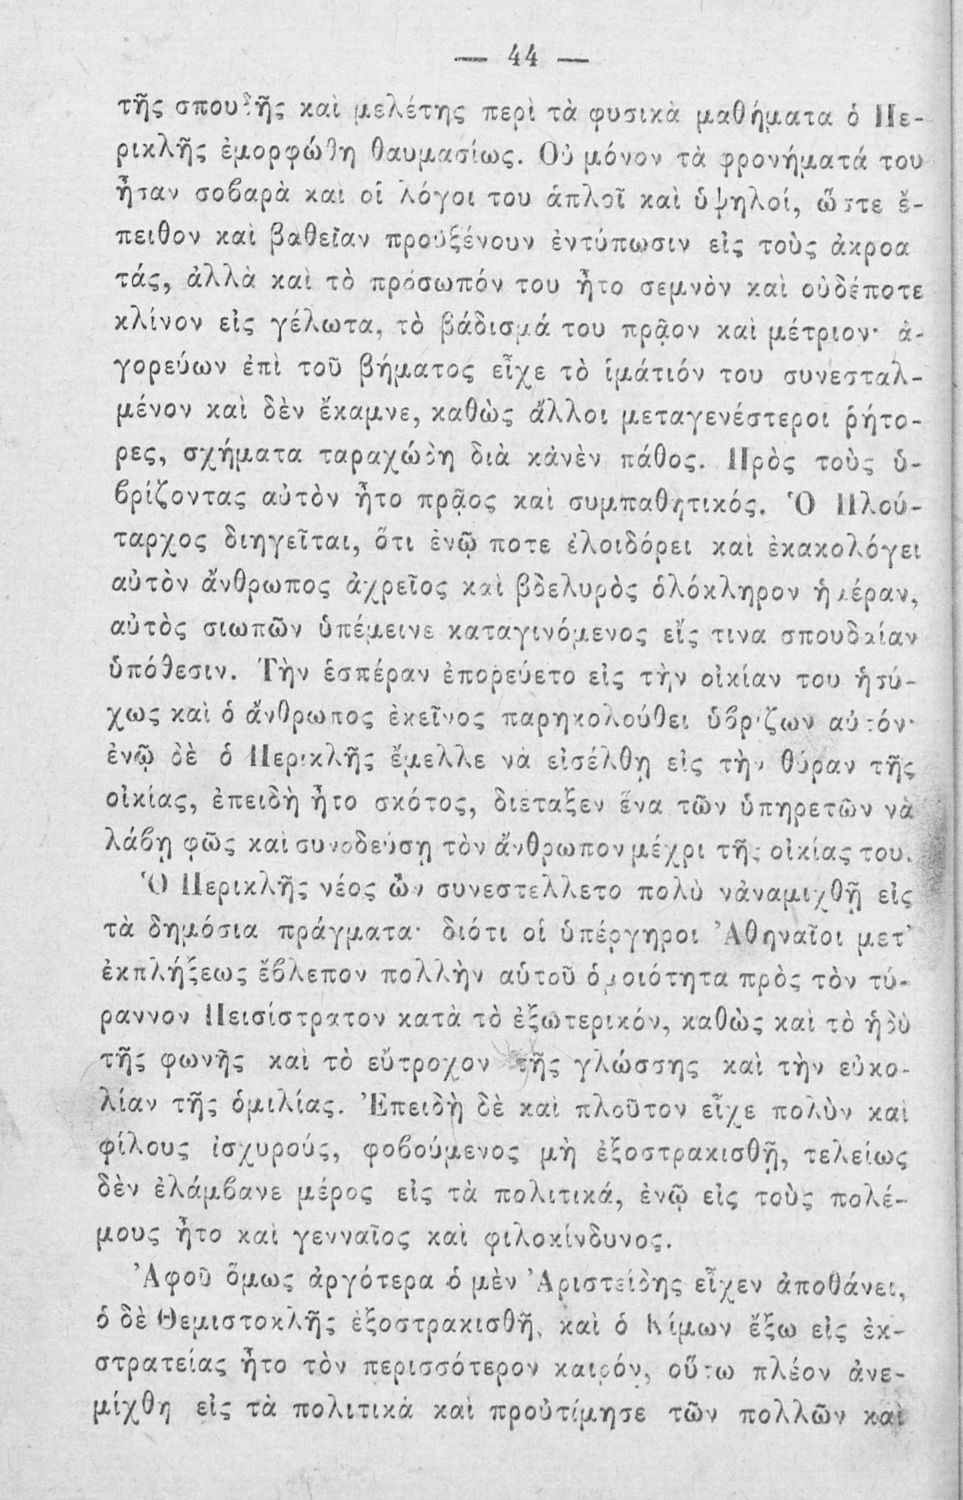 — 44 —
τῆς σπουδῆς καὶ μελέτης περὶ τὰ φυσικὰ μαθήματα ὁ Πε-
ρικλῆς ἐμορφώθη θαυμασίως. Οὐ μόνον τὰ φρονήματά του
ἦσαν σοβαρὰ καὶ οἱ λόγοι του ἁπλοῖ καὶ ὑψηλοί, ὥστε ἔ-
πειθον καὶ βαθεῖαν προὐξένουν ἐντύπωσιν εἰς τοὺς ἀκροα
τάς, ἀλλὰ καὶ τὸ πρόσωπόν του ἦτο σεμνὸν καὶ οὐδέποτε
κλίνον εἰς γέλωτα, τὸ βάδισμά του πρᾷον καὶ μέτριον· ἀ-
γορεύων ἐπὶ τοῦ βήματος εἶχε τὸ ἱμάτιόν του συνεσταλ-
μένον καὶ δὲν ἔκαμνε, καθὼς ἄλλοι μεταγενέστεροι ῥήτο-
ρες, σχήματα ταραχώδη διὰ κἀνὲν πάθος. Πρὸς τοὺς ὑ-
βρίζοντας αὐτὸν ἦτο πρᾷος καὶ συμπαθητικός. Ὁ Πλού-
ταρχος διηγεῖται, ὅτι ἐνῷ ποτε ἐλοιδόρει καὶ ἐκακολόγει
αὐτὸν ἄνθρωπος ἀχρεῖος καὶ βδελυρὸς ὁλόκληρον ἡμέραν,
αὐτὸς σιωπῶν ὑπέμεινε καταγινόμενος εἴς τινα σπουδαίαν
ὑπόθεσιν. Τὴν ἑσπέραν ἐπορεύετο εἰς τὴν οἰκίαν του ἡσύ-
χως καὶ ὁ ἄνθρωπος ἐκεῖνος παρηκολούθει ὑβρίζων αὐτόν·
ἐνῷ δὲ ὁ Περικλῆς ἔμελλε νὰ εἰσέλθῃ εἰς τὴν θύραν τῆς
οἰκίας, ἐπειδὴ ἦτο σκότος, διέταξεν ἕνα τῶν ὑπηρετῶν νὰ
λάβῃ φῶς καὶ συνοδεύσῃ τὸν ἄνθρωπον μέχρι τῆς οἰκίας του.
Ὁ Περικλῆς νέος ὢν συνεστέλλετο πολὺ νἀναμιχθῇ εἰς
τὰ δημόσια πράγματα· διότι οἱ ὑπέργηροι Ἀθηναῖοι μετ᾽
ἐκπλήξεως ἔβλεπον πολλὴν αὐτοῦ ὁμοιότητα πρὸς τὸν τύ-
ραννον Πεισίστρατον κατὰ τὸ ἐξωτερικόν, καθὼς καὶ τὸ ἡδὺ
τῆς φωνῆς καὶ τὸ εὔτροχον τῆς γλώσσης καὶ τὴν εὐκο-
λίαν τῆς ὁμιλίας. Ἐπειδὴ δὲ καὶ πλοῦτον εἶχε πολὺν καὶ
φίλους ἰσχυρούς, φοβούμενος μὴ ἐξοστρακισθῇ, τελείως
δὲν ἐλάμβανε μέρος εἰς τὰ πολιτικά, ἐνῷ εἰς τοὺς πολέ-
μους ἦτο καὶ γενναῖος καὶ φιλοκίνδυνος.
Ἀφοῦ ὅμως ἀργότερα ὁ μὲν Ἀριστείδης εἶχεν ἀποθάνει,
ὁ δὲ Θεμιστοκλῆς ἐξοστρακισθῆ, καὶ ὁ Κίμων ἔξω εἰς ἐκ-
στρατείας ἦτο τὸν περισσότερον καιρόν, οὕτω πλέον ἀνε-
μίχθη εἰς τὰ πολιτικὰ καὶ προὐτίμησε τῶν πολλῶν καὶ